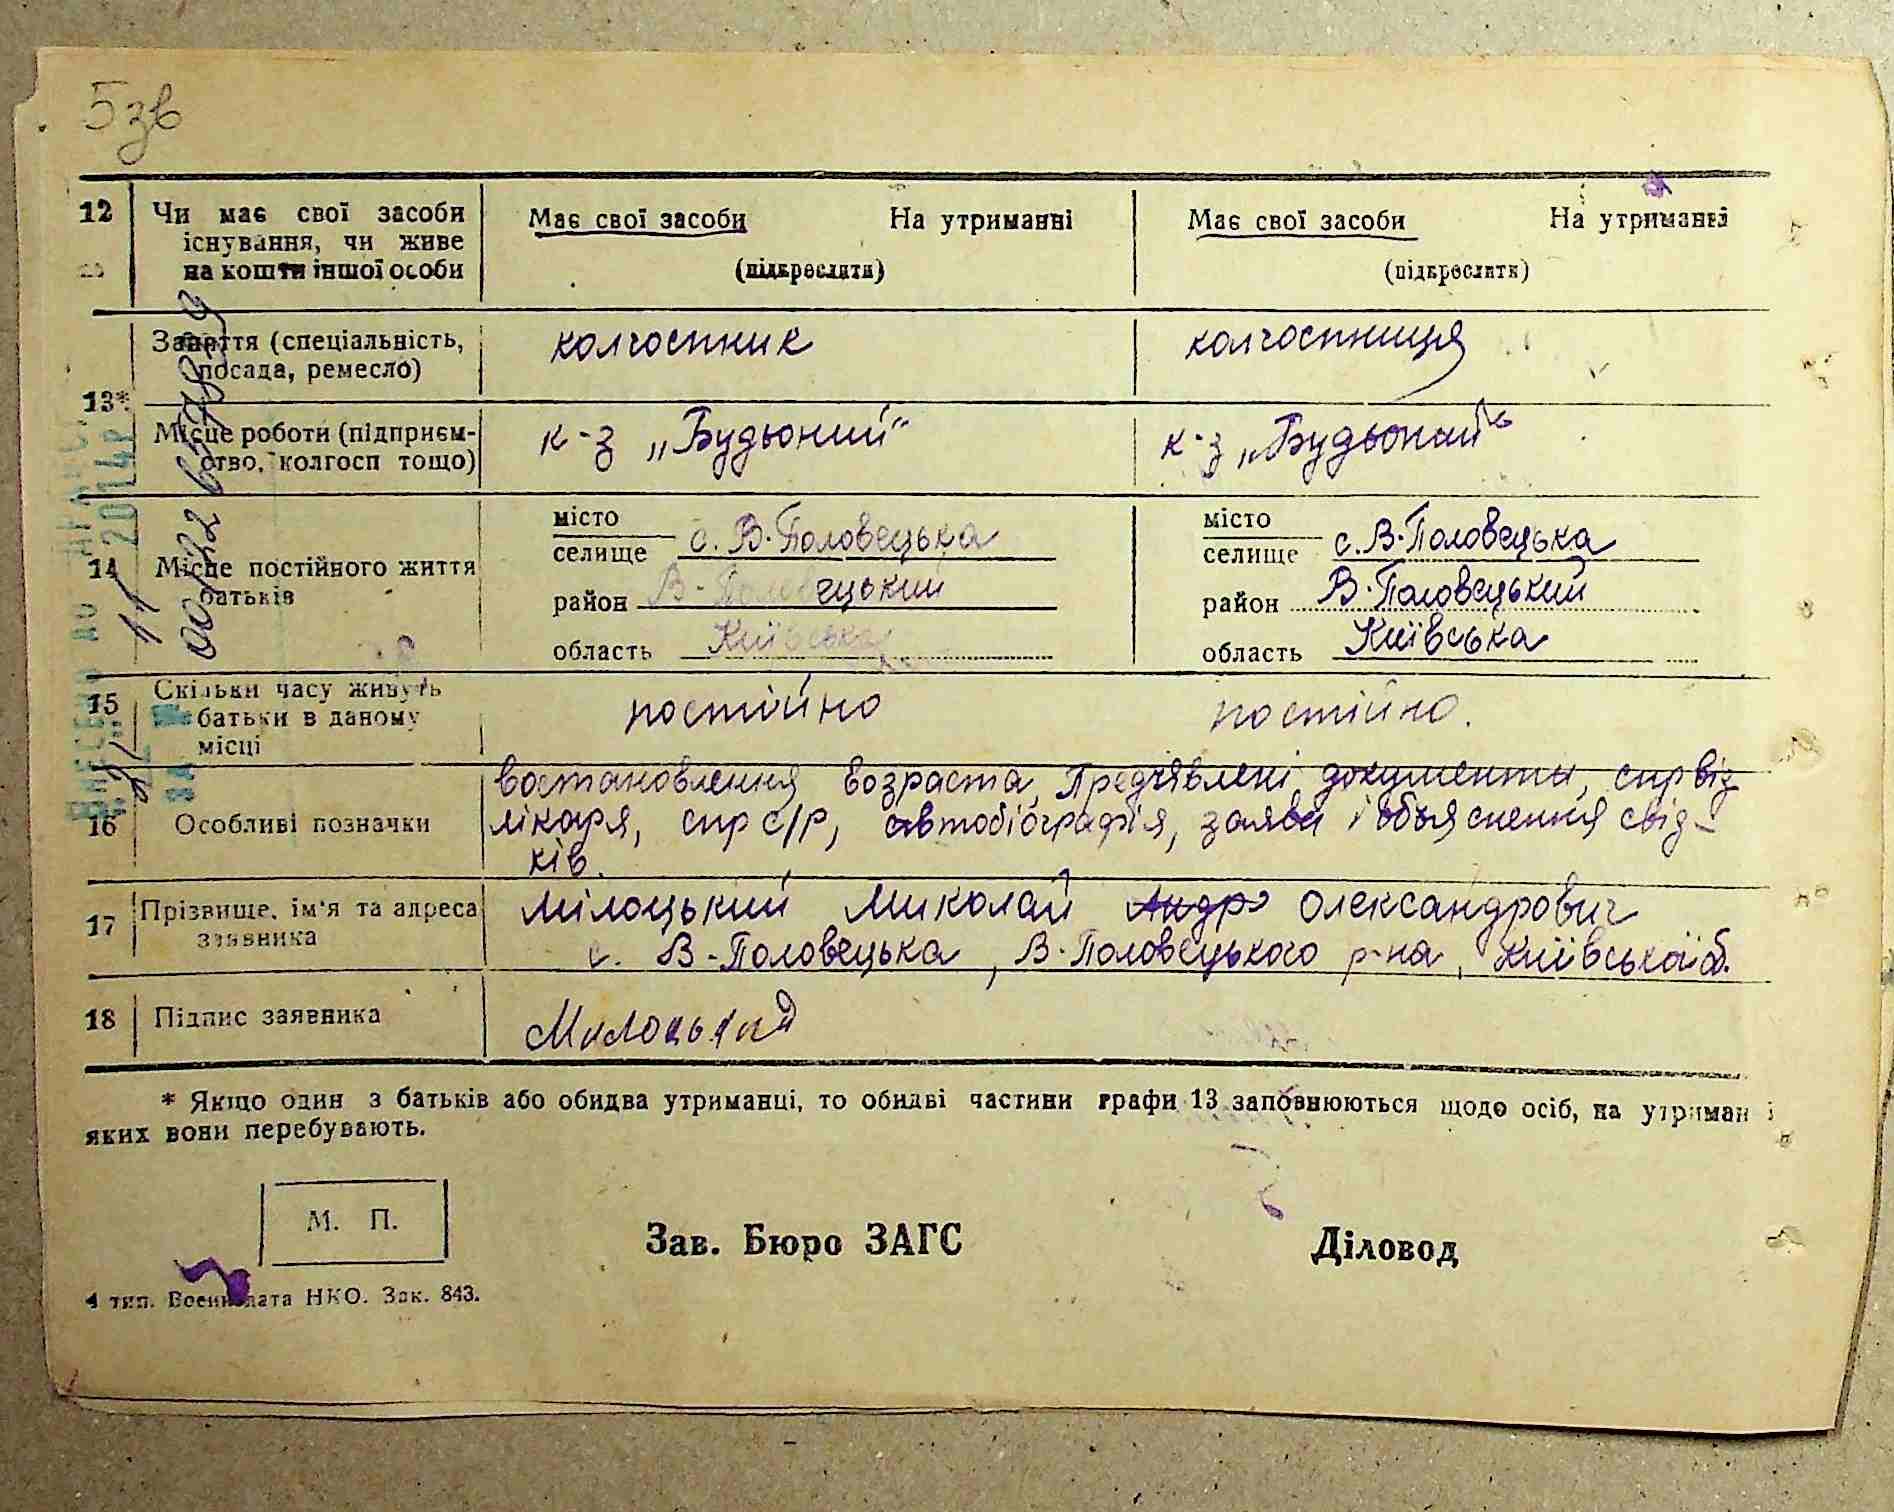 5зв
12 Чи має свої засоби існування, чи живе на кошти іншої особи
Має свої засоби На утриманні
(підкреслити)
Має свої засоби На утриманні
(підкреслити)
13*
Заняття (спеціальність, посада, ремесло)
колгоспник
колгоспниця
Місце роботи (підприємство, колгосп тощо)
к-з „Будьоний"
к-з „Будьоний"
14 Місце постійного життя батьків
місто
селище с. В-Половецька
район В-Половецький
область Київська
місто
селище с. В-Половецька
район В-Половецький
область Київська
15 Скільки часу живуть батьки в даному місці
постійно
постійно.
16 Особливі позначки
востановлення возраста, Предчявлені документи, спр від
лікаря, спр с/р, автобіографія, заява і объяснення свід-
ків.
17 Прізвище, ім'я та адреса заявника
Мілоцький Миколай Андр Олександрович
с. В-Половецька, В-Половецького р-на, Київської об.
18 Підпис заявника
Милоцький
* Якщо один з батьків або обидва утриманці, то обидві частини графи 13 заповнюються щодо осіб, на утриман і
яких вони перебувають.
М. П.
Зав. Бюро ЗАГС
Діловод
4 тип. Воениздата НКО. Зак. 843.